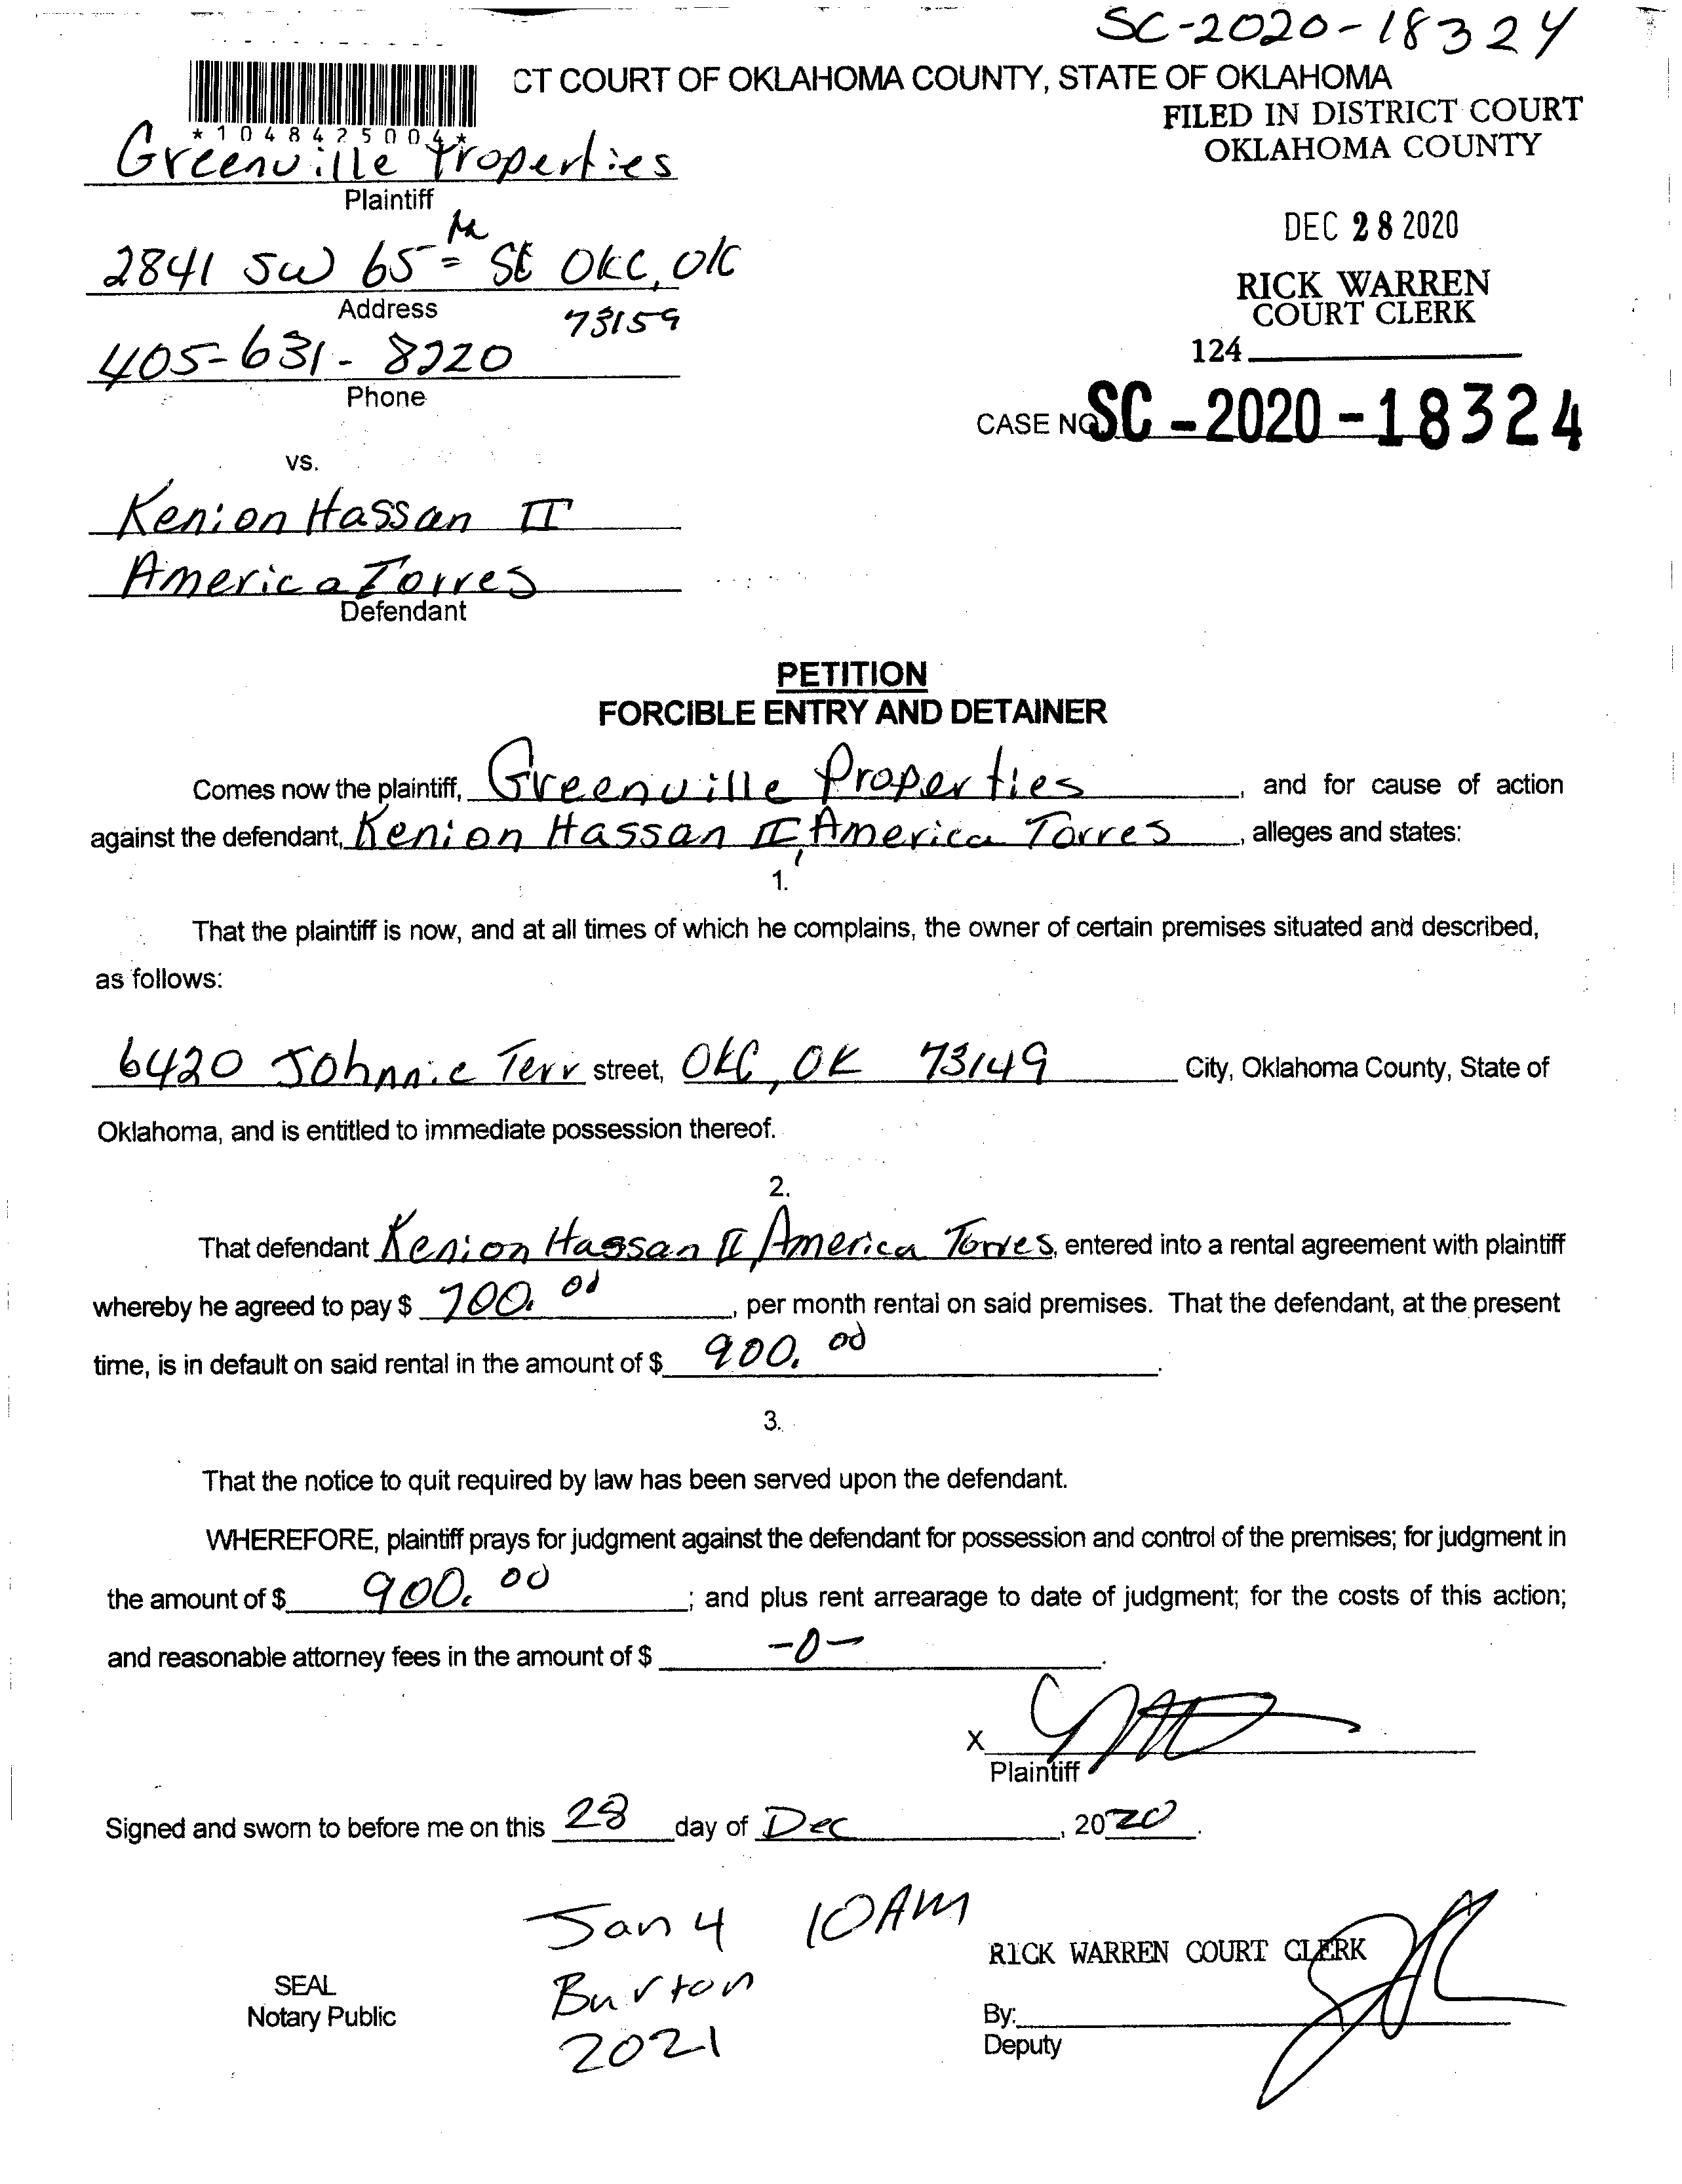 SC-2020-18324
CT COURT OF OKLAHOMA COUNTY, STATE OF OKLAHOMA
FILED IN DISTRICT COURT
OKLAHOMA COUNTY
*1048425004*
Greenville Properties
Plaintiff
DEC 28 2020
2841 SW 65th St OKC, OK
Address
73159
RICK WARREN
COURT CLERK
124
405-631-8220
Phone
CASE NO SC-2020-18324
vs.
Kenion Hassan II
America Torres
Defendant
PETITION
FORCIBLE ENTRY AND DETAINER
Comes now the plaintiff, Greenville Properties, and for cause of action
against the defendant, Kenion Hassan II, America Torres, alleges and states:
1.
That the plaintiff is now, and at all times of which he complains, the owner of certain premises situated and described,
as follows:
6420 Johnnie Terr street, OKC, OK 73149 City, Oklahoma County, State of
Oklahoma, and is entitled to immediate possession thereof.
2.
That defendant Kenion Hassan II, America Torres, entered into a rental agreement with plaintiff
whereby he agreed to pay $ 700.00, per month rental on said premises. That the defendant, at the present
time, is in default on said rental in the amount of $ 900.00.
3.
That the notice to quit required by law has been served upon the defendant.
WHEREFORE, plaintiff prays for judgment against the defendant for possession and control of the premises; for judgment in
the amount of $ 900.00; and plus rent arrearage to date of judgment; for the costs of this action;
and reasonable attorney fees in the amount of $ -0-.
X
Plaintiff
Signed and sworn to before me on this 28 day of Dec, 2020.
Jan 4 10AM
RICK WARREN COURT CLERK
SEAL
Burton
Notary Public
By:
2021
Deputy